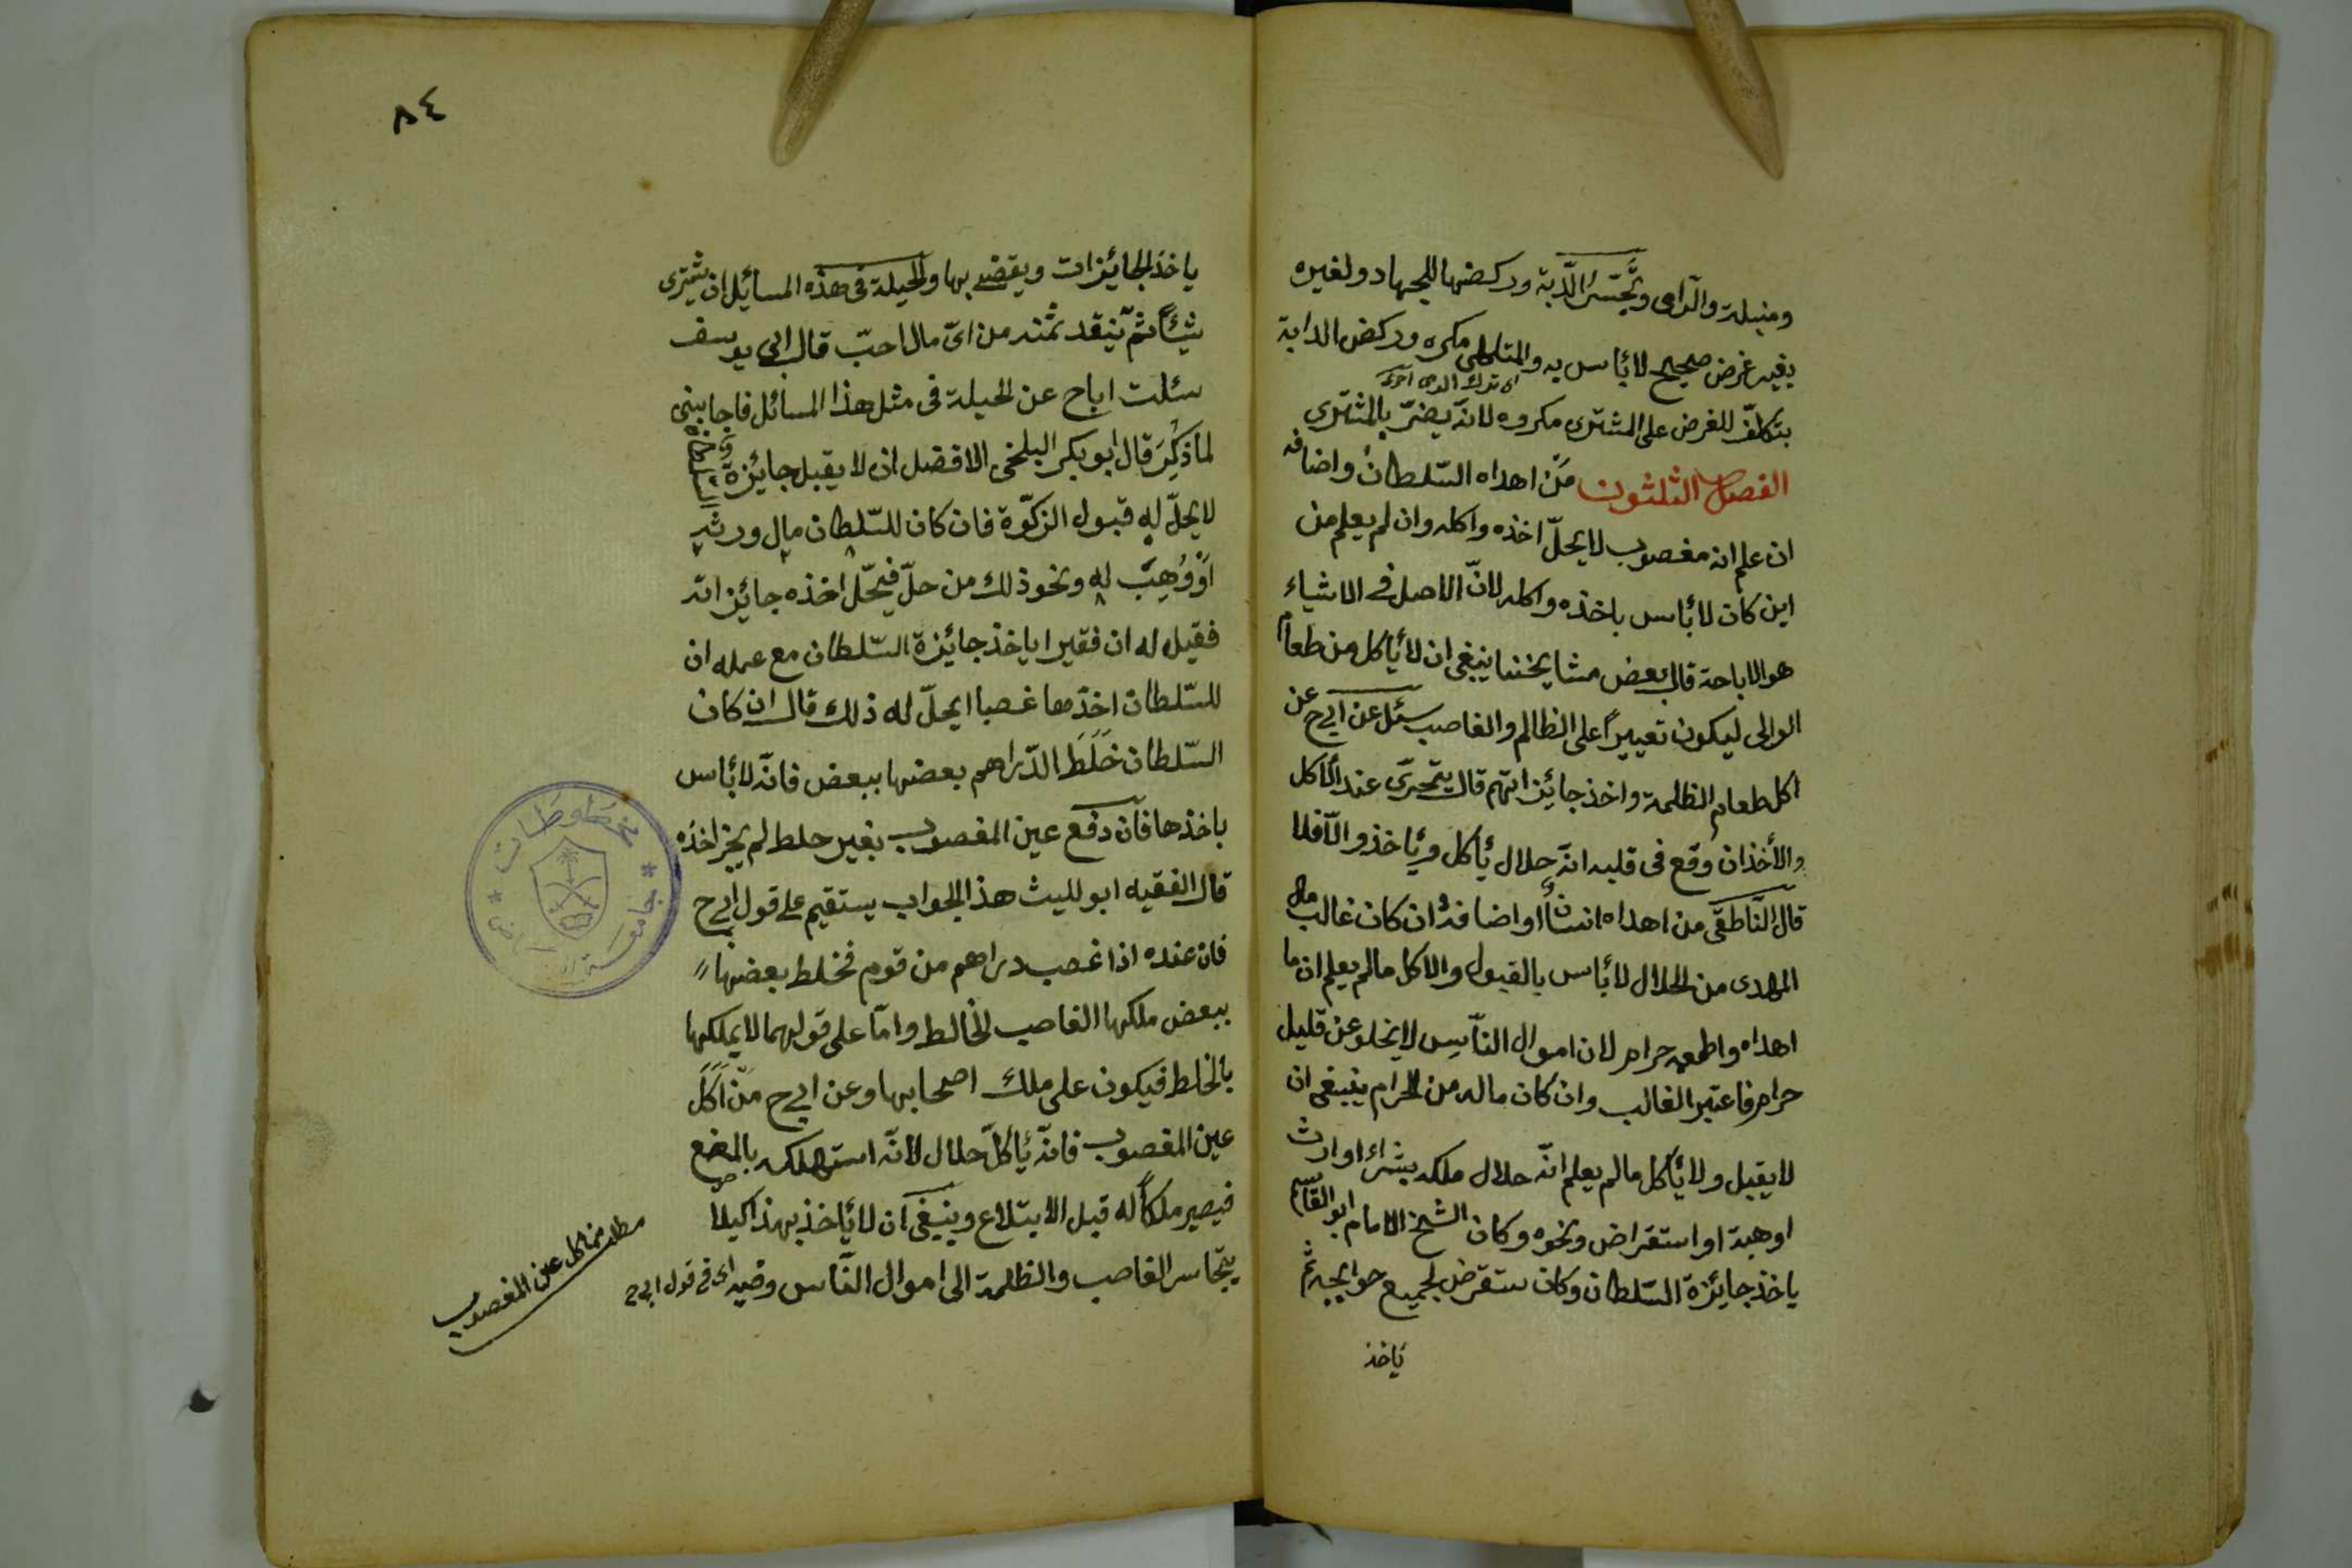 ومنبلة والرامى وتجسّس الدّبة وركضها للجهاد ولغيره
بغير غرض صحيح لابأس به والمتلهّى مكره وركض الدابة
بتكلّف للغرض على المشترى مكروه لانه يضرّ بالمشترى
الفصل الثلثون مَن اهداه السّلطان واضافه
ان علم انه مغصوب لايحلّ اخذه واكله وان لم يعلم من
اين كان لابأس باخذه واكله لانّ الاصل فى الاشياء
هو الاباحة قال بعض مشايخنا ينبغى ان لايأكل من طعام
الوالى ليكون تعييراً على الظالم والغاصب سئل عن ابى ح عن
اكل طعام الظلمة واخذ جائزاتهم قال يتحرّى عند الاكل
والأخذ ان وقع فى قلبه انّه حلال يأكل ويأخذ والّا فلا
قال النّاطقى من اهداه انسان او اضافه ان كان غالب مال
المهدى من الحلال لابأس بالقبول والاكل مالم يعلم ان ما
اهداه واطعمه حرام لان اموال النّاس لايخلو عن قليل
حرام فاعتبر الغالب وان كان ماله من الحرام ينبغى ان
لايقبل ولايأكل مالم يعلم انّه حلال ملكه بشراء او ارث
او هبة او استقراض ونحوه وكان الشيخ الامام ابو القاسم
ياخذ جائزة السّلطان وكان ستقرض لجميع حوايجه ثم
ياخذ
٨٤
ياخذ الجائزات ويقضى بها والحيلة فى هذه المسائل ان يشترى
شيئاً ثمّ ينقد ثمنه من اىّ مال احبّ قال ابى يوسف
سئلت اباح عن الحيلة فى مثل هذا المسائل فاجابنى
لما ذُكِرَ قال ابو بكر البلخى الافضل ان لايقبل جائزة
لايحلّ له قبول الزكوّة فان كان للسّلطان مال ورثه
اَوْ وُهِبَ له ونحو ذلك من حلّ فيحلّ اخذه جائزاته
فقيل له ان فقيرا ياخذ جائزة السّلطان مع عمله ان
للسّلطان اخذها غصبا ايحلّ له ذلك قال ان كان
السّلطان خَلَطَ الدّراهم بعضها ببعض فانّه لابأس
باخذها فان دفع عين المغصوب بغير حلط لم يجز اخذه
قال الفقيه ابو لليث هذ الجواب يستقيم على قول ابى ح
فان عنده اذا غصب دراهم من قوم فخلط بعضها
ببعض ملكها الغاصب لخالط وامّا على قولهما لايملكها
بالخلط فيكون على ملك اصحابها وعن ابى ح مَنْ اَكَلَ
عين المغصوب فانّه يأكل حلال لانّه استهلكه بالمضع
فيصير ملكاً له قبل الابتلاع وينبغى ان لايأخذ بهذا كيلا
يتجاسر الغاصب والظلمة الى اموال النّاس وفيه اى فى قول ابى ح
مطلب من اكل عين المغصوب
مخطوطات
جامعة